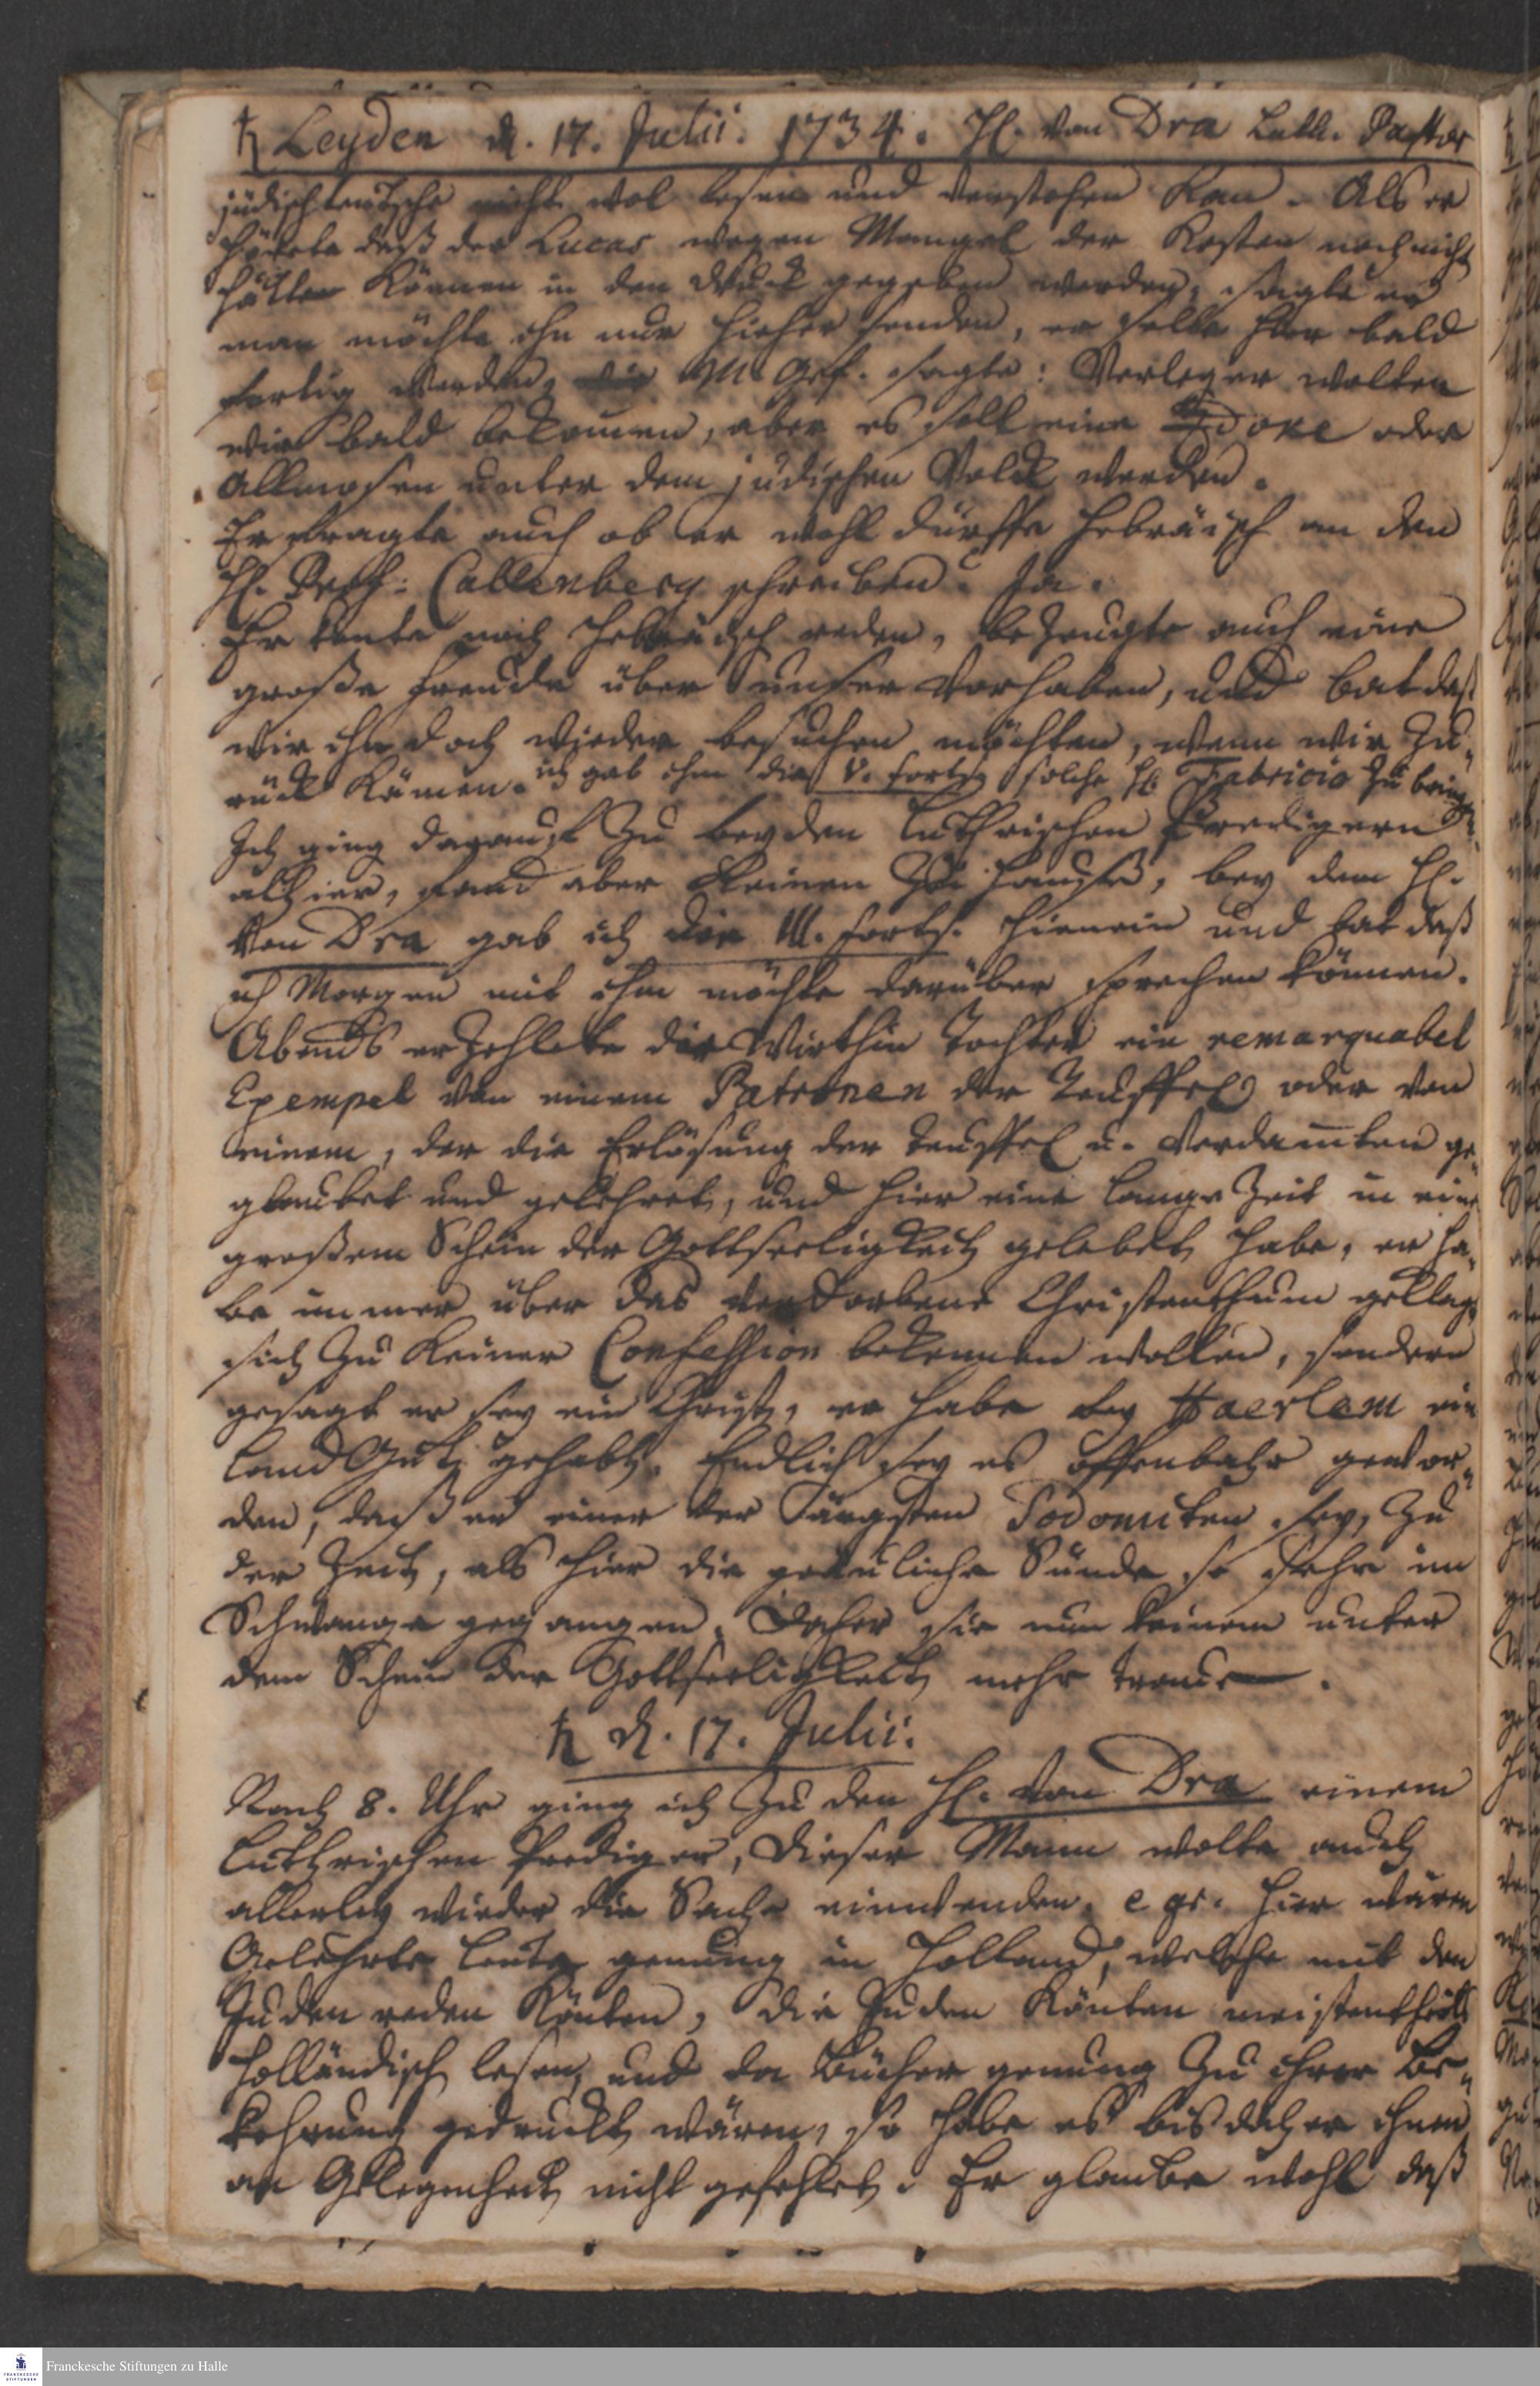 ♄ Leyden d. 17. Julii. 1734. H. von Dra Luth. Pastor
jüdischteutsche nicht wol lesen und verstehen kan. Als er
hörete daß der Lucas wegen Mangel der Kosten noch nicht
hätte können in den Druck gegeben werden, sagte er
man möchte ihn nur hieher senden, er solte hier bald
fertig werden, M. Gef. sagte: Verleger wolten
wir bald bekommen, aber es soll eine oder
Allmosen unter dem jüdischen Volck werden.
Er fragte auch ob er wohl dürffe Hebräisch an den
H. Prof. Callenberg schreiben? Ja.
Er konte noch Hebräisch reden, bezeugte auch eine
große Freude über unser Vorhaben, und bat daß
wir ihn doch wieder besuchen möchten, wenn wir zu,,
rück kämen. ich gab ihm die V. Forts. solche H. Fabricio zu bringen
Ich ging darauf zu beyden Luthrischen Predigern
alhier, fand aber keinen zu Hause, bey dem H.
von Dra gab ich die III. Forts. hienein und bat daß
ich Morgen mit ihm möchte darüber sprechen können.
Abends erzehlete die Wirthin Tochter ein remarquabel
Exempel von einem Patronen der Teuffel oder von
einem, der die Erlösung der Teuffel u. Verdamten ge,,
glaubet und gelehret, und hier eine lange Zeit in eine
großem Schein der Gottseeligkeit gelebet habe, er ha,,
be immer über das verdorbene Christenthum geklagt
sich zu keiner Confession bekennen wollen, sondern
gesagt er sey ein Christ, er habe bey Haerlem ein
Land Guth gehabt. Endlich sey es offenbahr gewor,,
den, daß er einer der ärgsten Sodomiten sey, zu
der Zeit, als hier die greuliche Sünde so sehr im
Schwange gegangen. Daher sie nun keinem unter
dem Schein der Gottseeligkeit mehr traue.
♄ d. 17. Julii.
Nach 8. Uhr ging ich zu den H. von Dra einem
Luthrischen Prediger, dieser Mann wolte auch
allerley wieder die Sache einwenden. e gr. hier wären
Gelehrte Leute genung in Holland, welche mit den
Juden reden könten, die Juden könten meistentheils
Holländisch lesen, und da Bücher genung zu ihrer Be,,
kehrung gedruckt wären, so habe es bis daher ihnen
an Gelegenheit nicht gefehlet. Er glaube wohl daß
Franckesche Stiftungen zu Halle